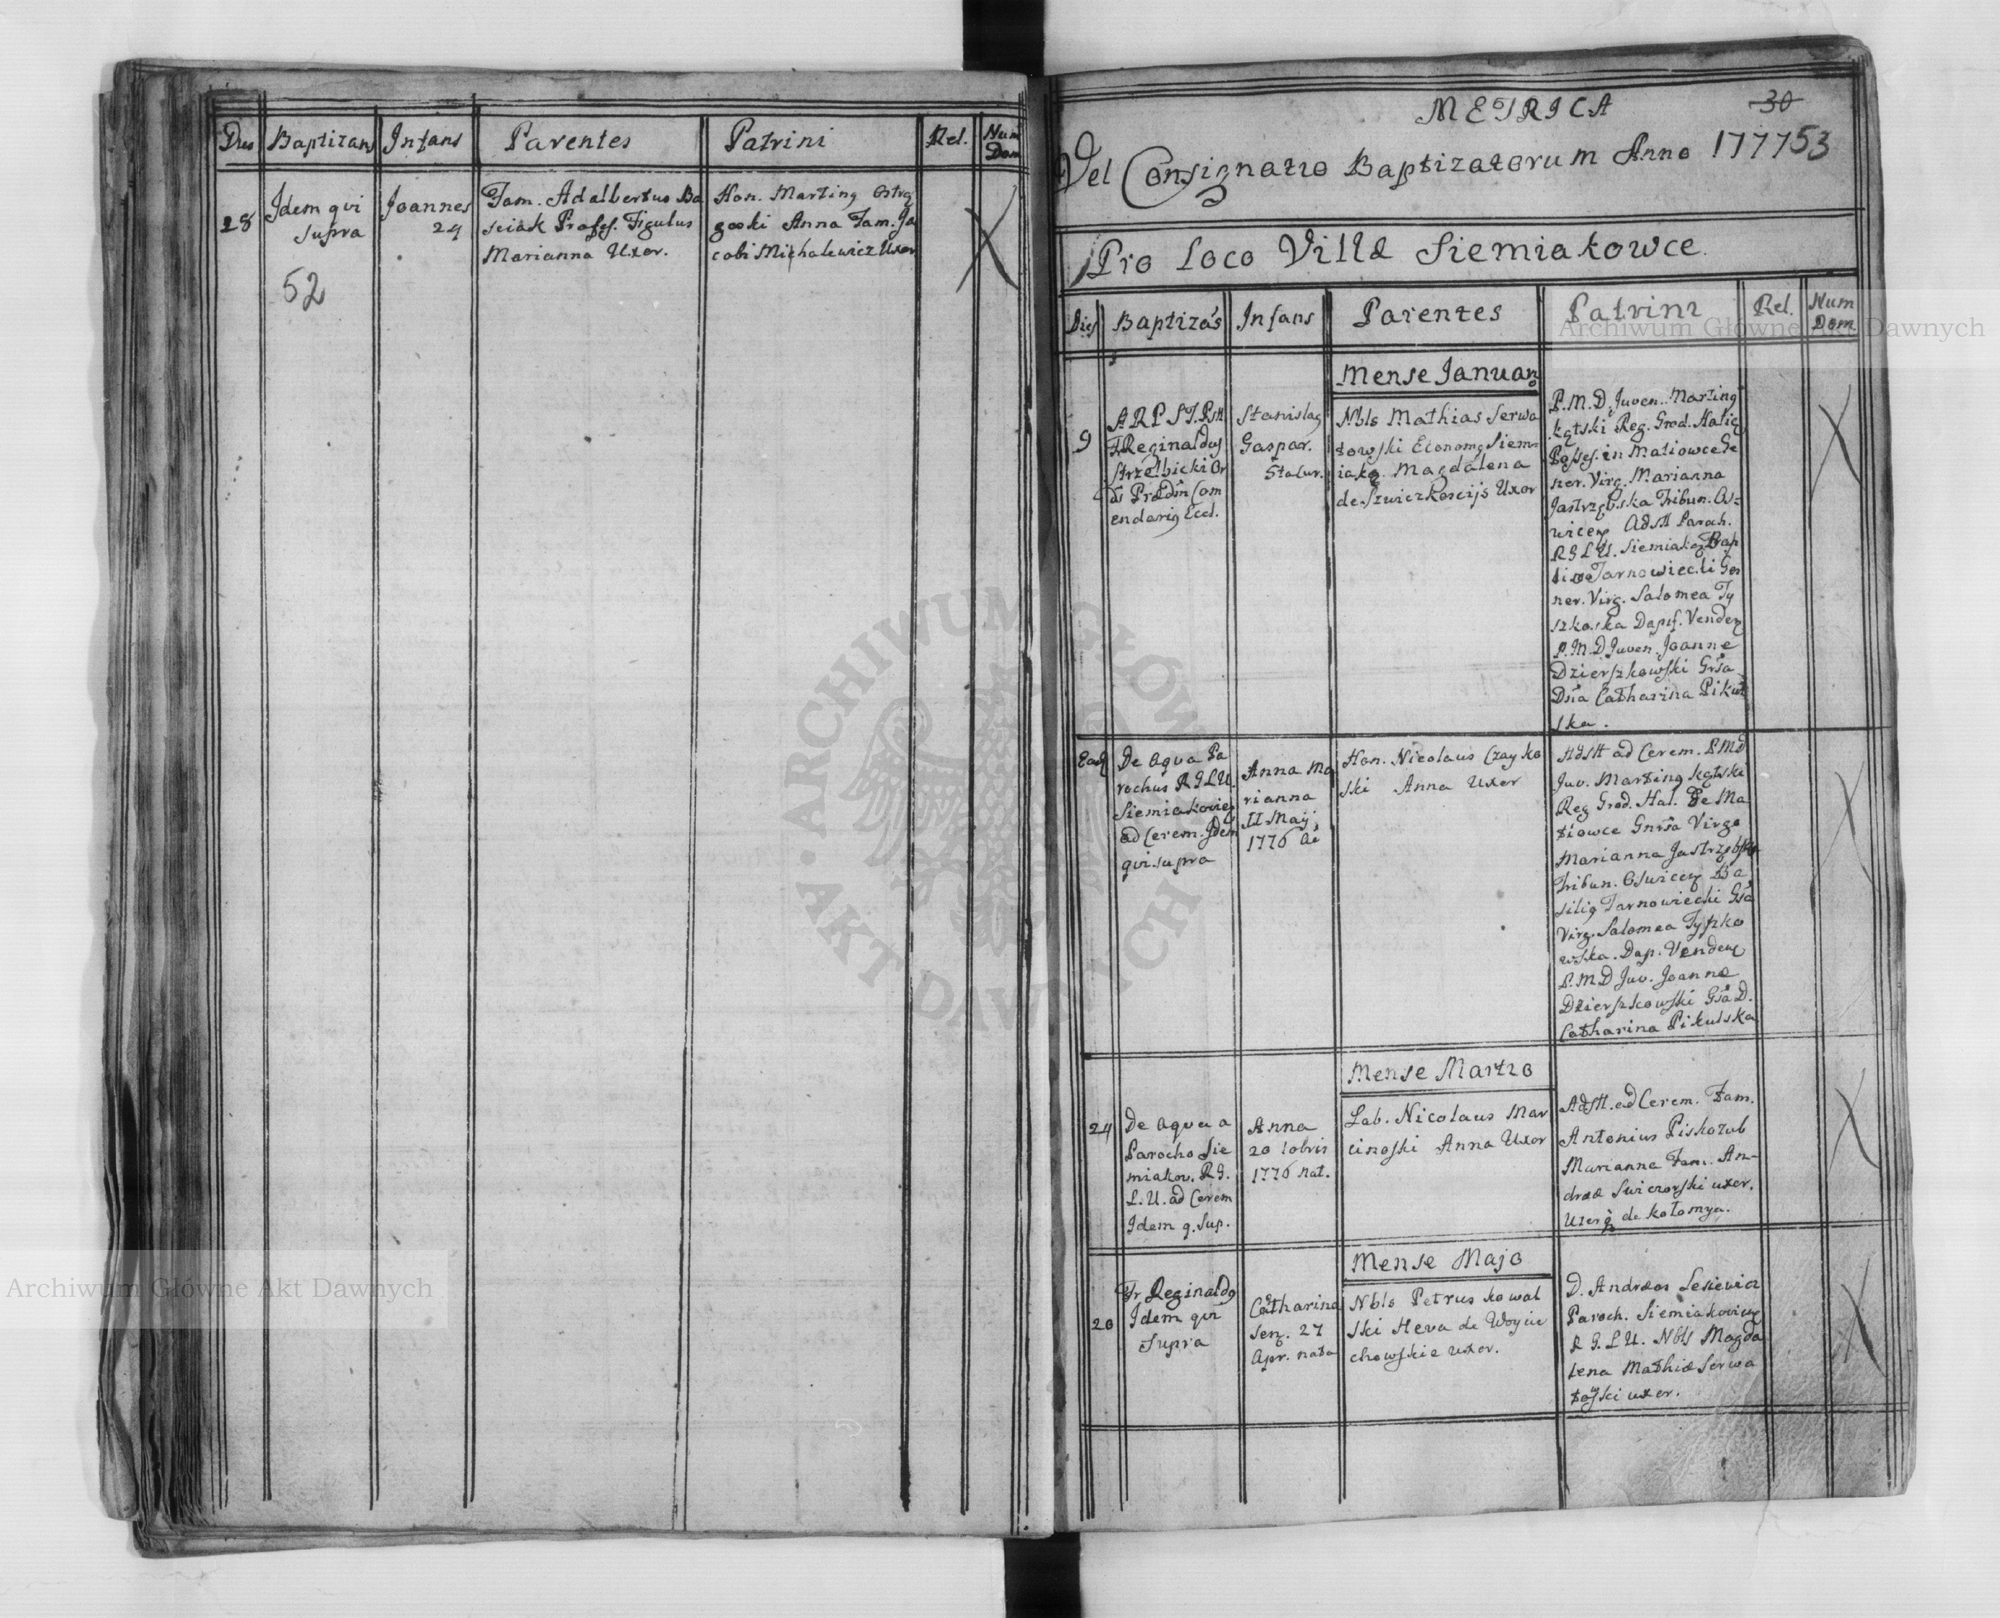 Dies Baptizans Infans Parentes Patrini Rel. Num Dom
28
Idem qvi
supra
Joannes
24
Fam. Adalbertus Ba
siak Profes. Figulus
Marianna Uxor.
Hon. Marting Ostro
goski Anna Fam. Ja
cobi Michalewicz Uxor
52
METRICA
30
Vel Consignatio Baptizatorum Anno 1777
53
Pro Loco Villæ Siemiakowce.
Dies Baptizãs Infans Parentes Patrini Rel. Num Dom
Mense Januario
9
A. R. P. S. T.
F. Reginaldus
Strzelbicki Or
Præd. Com
endarig Eccl.
Stanislag
Gaspar.
Nbls Mathias Serwa
towski Economg Siem-
iakov. Magdalena
Uxor
P. M. D. Juven. Marting
Kątski Reg. Grod. Halic
Posses. in Matiowce Ge
ner. Virg. Marianna
Jastrzębska Tribun. Os-
wicen Adstt Paroch.
R G L U. Siemiakov
Tarnowiecki Ge
ner. Virg. Salomea Ty
szkoska Dapif. Venden
P. M. D Juven. Joanne
Dzierszkowski Grsa
Dna Catharina Pikul
ska.
Ead
De aqva Pa
rochus R G L U.
Siemiakovien
ad Cerem. Idem
qvi supra
Anna Ma
rianna
II Maij
1776
Hon. Nicolaus Czayko
ski Anna Uxor
Adstt ad Cerem. P M D
Juv. Marting Kątski
Reg Grod. Hal. De Ma
tiowce Gnrsa Virgo
Marianna Jastrzębska
Tribun. Oswicen Ba
silig Tarnowiecki Gsa
Virg. Salomea Tyszko
wska. Dap. Venden
P. M D Juv. Joanne
Dzierszkowski Gsa D.
Catharina Pikulska
Mense Martio
24
De aqva a
Parocho Sie
miakov. R G.
L. U. ad Cerem
Idem q. sup.
Anna
20 10bris
1776 nat.
Lab. Nicolaus Mar
cinoski Anna Uxor
Adstt. ad Cerem. Fam.
Antonius Piskozub
Marianna Fam. An-
dreæ Swiczorski uxor.
Uterq de Kołomya.
Mense Majo
20
Fr Reginaldg
Idem qvi
Supra
Catharina
Sen. 27
Apr. nata
Nbls Petrus Kowal
ski Heva de Woycie
chowskie uxor.
D. Andreas Lesiewicz
Paroch. Siemiakovien
R G. L U. Nbls Magda
lena Mathiæ Serwa
toski uxor.
Archiwum Główne Akt Dawnych
Archiwum Główne Akt Dawnych
ARCHIWUM GŁÓWNE AKT DAWNYCH